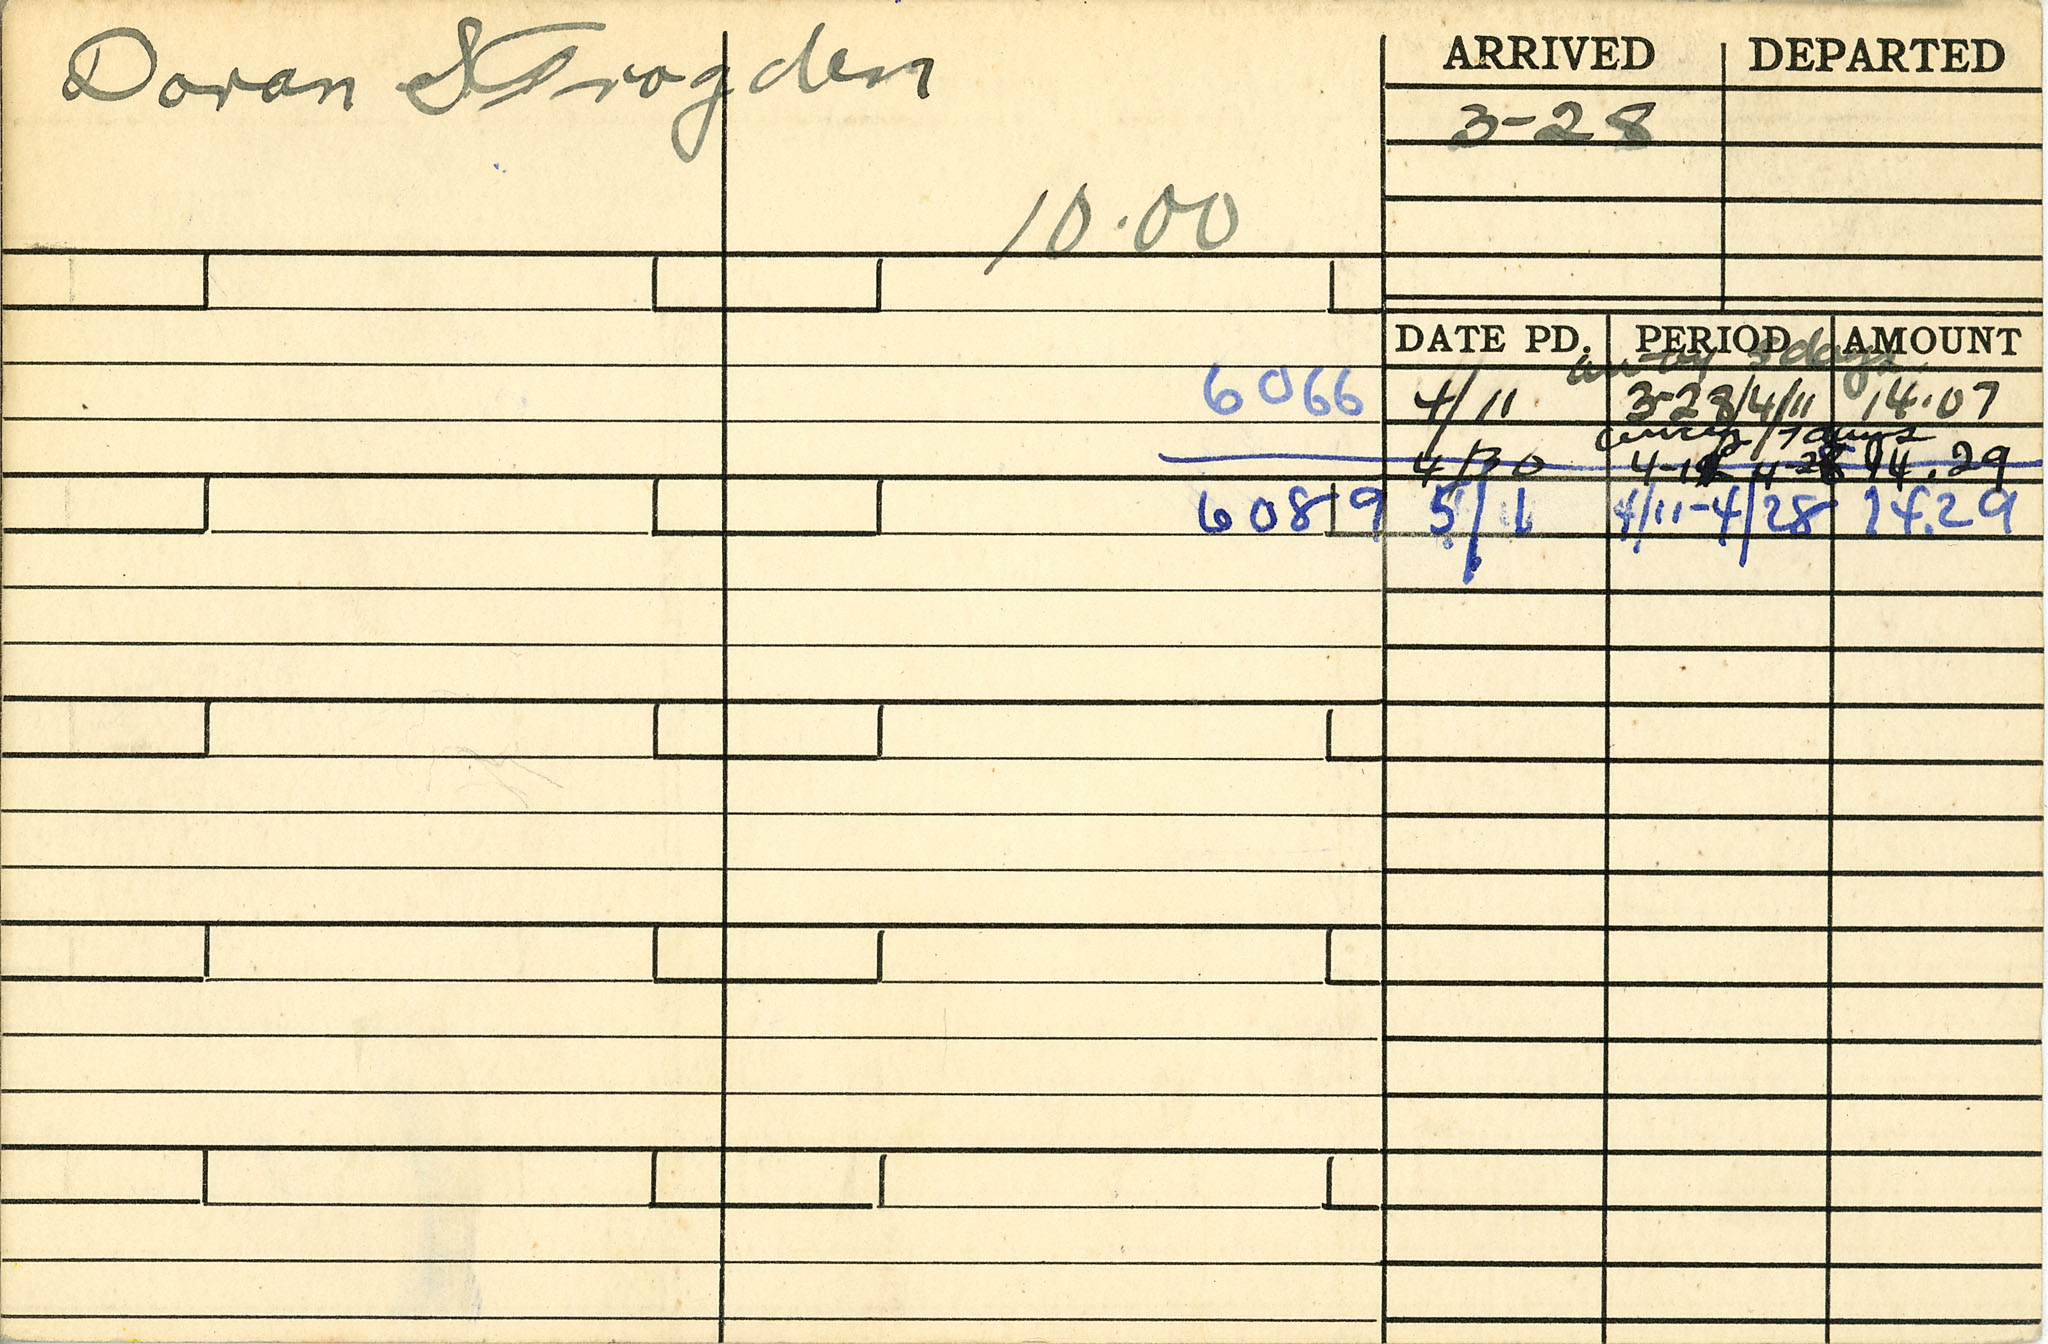 Doran S Trogden
ARRIVED DEPARTED
3-28
10.00
DATE PD. PERIOD AMOUNT
away 3 days
6066 4/11 3-28/4/11 14.07
away 7 days
4/30 4-12 4-28 14.29
60819 5/1 4/11-4/28 14.29